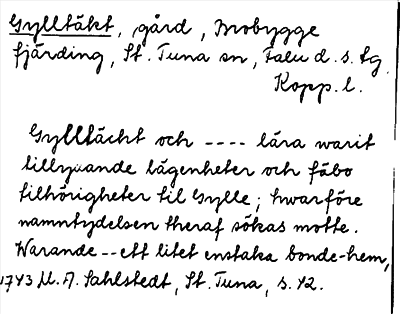 Gylltäkt, gård, Brobygge
fjärding, St. Tuna sn, Falu d.s. tg
Kopp. l.
Gylltächt och ---- lära warit
tillhyuande lägenheter och fäbo
tilhörigheter til Gylle; hwarföre
namntydelsen theraf sökas motte.
Warande -- ett litet enstaka bonde-hem,
1743 U. A. Sahlstedt, St. Tuna, s. 42.